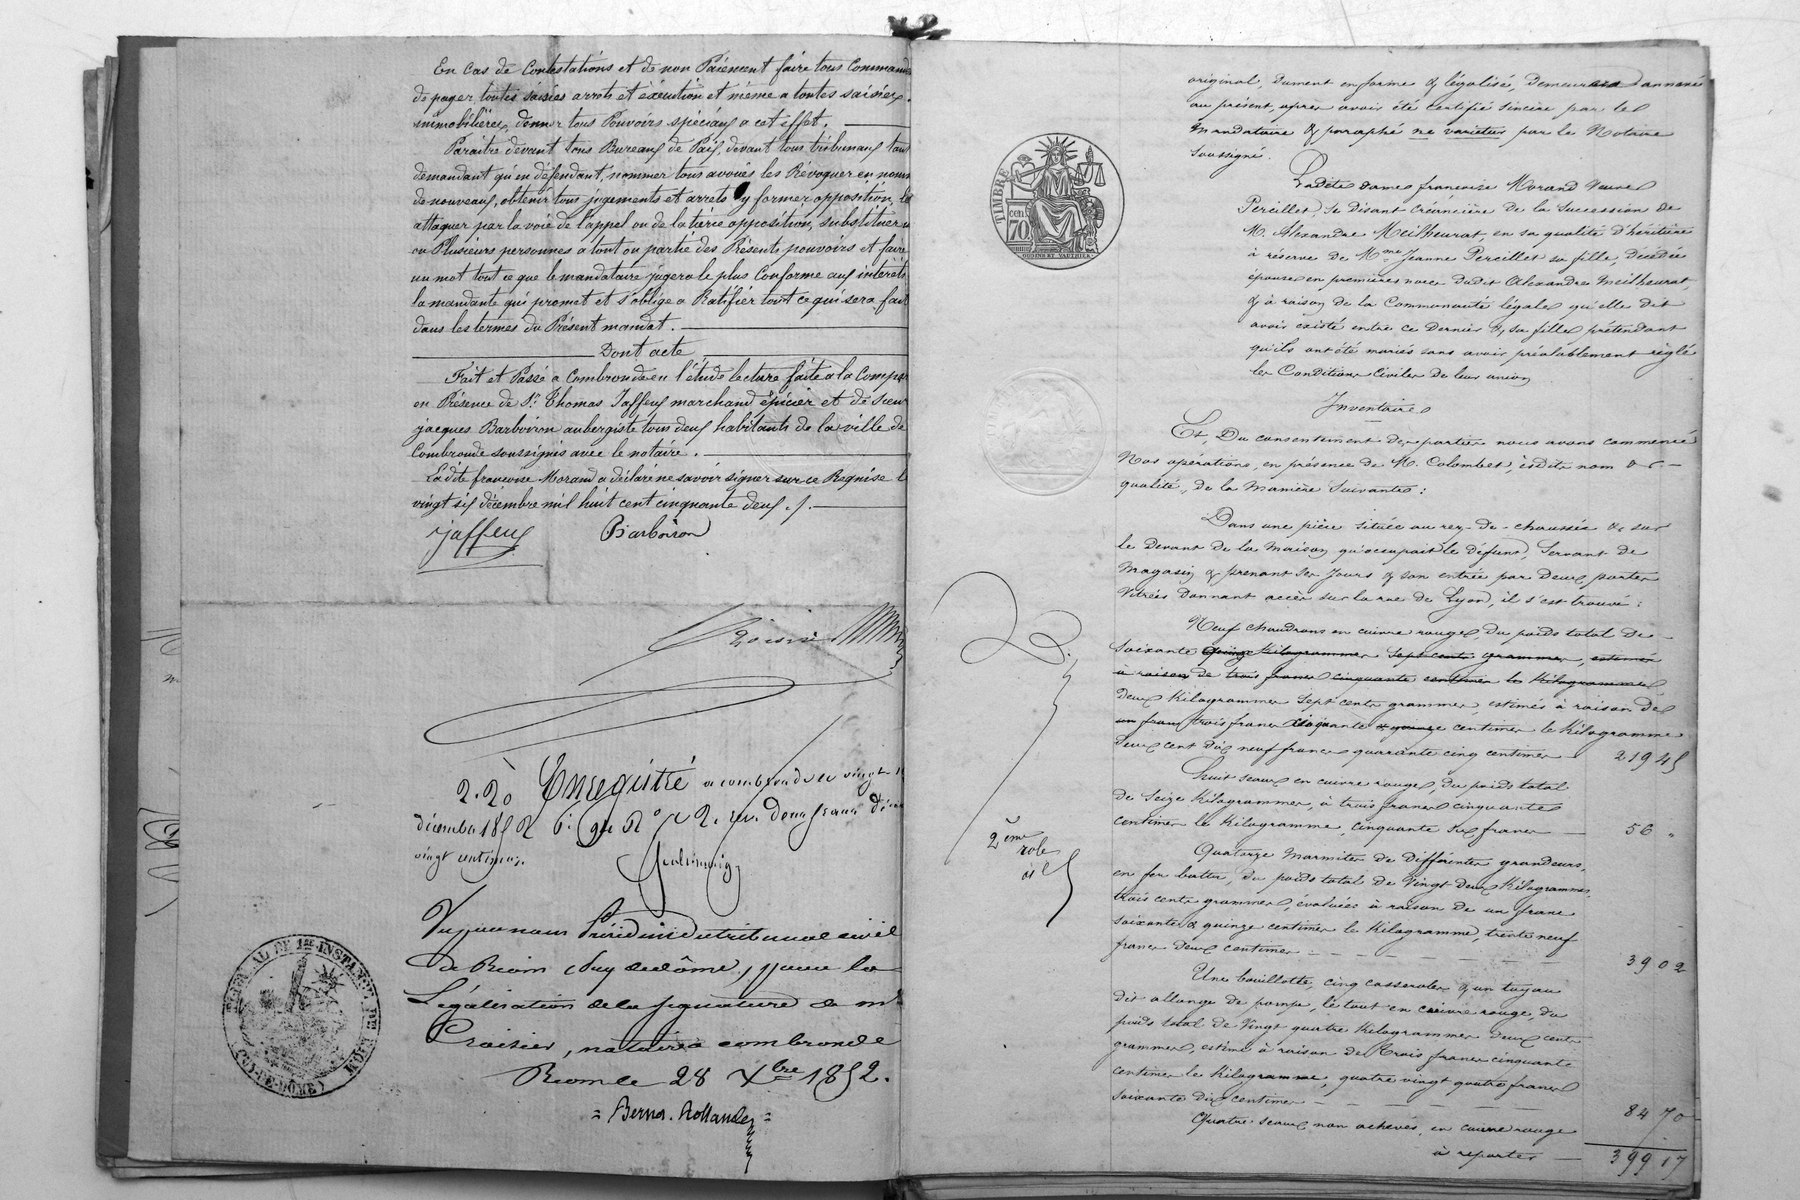 En Cas de Contestations et de non Paiement faire tous Commande
de payer, toutes saisies arrets et éxécution et même a toutes saisies
immobilières, donner tous Pouvoirs spéciaux a cet effet.
Paraitre devant tous Bureaux de Paix, devant tous tribunaux tant
demandant qu'en défendant, nommer tous avoués les Révoquer en nommer
de nouveaux, obtenir tous jugements et arrets y former opposition, les
attaquer par la voie de l'appel ou de la tierce opposition, substituer u
ou Plusieurs personnes a tout ou partie des Présents pouvoirs et faire
un mot tout ce que le mandataire jugera le plus Conforme aux intérêts
la mandante qui promet et s'oblige a Ratifier tout ce qui sera fait
dans les termes du Présent mandat.
Dont acte
Fait et Passé a Combronde en l'étude lecture faite a la Compar
en Présence de Sr. Thomas Jaffeux marchand épicier et de sieur
jacques Barboiron aubergiste tous deux habitants de la ville de
Combronde soussignés avec le notaire.
Ladite françoise Morand a déclaré ne savoir signer sur ce Requise le
vingt six décembre mil huit cent cinquante deux ./.
Jaffeux Barboiron
2.20 Enregistré a combronde le vingt
décembre 1852 f° R° C 2. reçu deux francs
vingt centimes.
Vu par nous Président du tribunal civil
de Riom (Puy de dôme) pour la
Légalisation de la signature de Me
Croisier, notaire a combronde
Riom le 28 Xbre 1852.
= Berna. Rollande =
TRIBUNAL DE 1RE INSTANCE DE RIOM
(PUY-DE-DÔME)
original, dument en forme & légalisé, demeurera annexé
au présent, après avoir été certifié sincère par le
mandataire & paraphé ne varietur par le Notaire
soussigné.
TIMBRE
cen. 70
OUDINÉ ET VAUTHIER
Ladite dame françoise Morand Veuve
Percillet, se disant Créancière de la succession de
M. Alexandre Meilheurat, en sa qualité d'héritière
à réserve de Mme Jeanne Percillet sa fille, décédée
épouse en premières noces dudit Alexandre Meilheurat,
& à raison de la Communauté légale qu'elle dit
avoir existé entre ce dernier & sa fille, prétendant
qu'ils ont été mariés sans avoir préalablement réglé
les Conditions Civiles de leur union
Inventaire
Et, Du consentement des parties nous avons commencé
Nos opérations, en présence de M. Colombet, èsdits nom &
qualité, de la manière suivante :
Dans une pièce située au rez-de-chaussée & sur
le devant de la maison qu'occupait le défunt, servant de
magasin & prenant ses jours & son entrée par deux portes
vitrées donnant accès sur la rue de Lyon, il s'est trouvé :
Neuf chaudrons en cuivre rouge, du poids total de
soixante quinze kilogrammes sept cents grammes, estimés
à raison de trois francs cinquante centimes le kilogramme
deux kilogrammes sept cents grammes estimés à raison de
un franc trois francs cinquante & quinze centimes le kilogramme
deux cent dix neuf francs quarante cinq centimes 219 45
Huit seaux en cuivre rouge, du poids total
de seize kilogrammes, à trois francs cinquante
centimes le kilogramme, cinquante six francs 56 "
2ème
rôle
Quatorze marmites de différentes grandeurs,
en fer battu, du poids total de vingt deux kilogrammes
trois cents grammes, évaluées à raison de un franc
soixante & quinze centimes le kilogramme, trente neuf
francs deux centimes 39 02
Une bouillotte, cinq casseroles & un tuyau
dit allonge de pompe, le tout en cuivre rouge, du
poids total de vingt quatre kilogrammes deux cents
grammes, estimé à raison de trois francs cinquante
centimes le kilogramme, quatre vingt quatre francs
soixante dix centimes 84 70
Quatre seaux non achevés, en cuivre rouge
à reporter 399 17